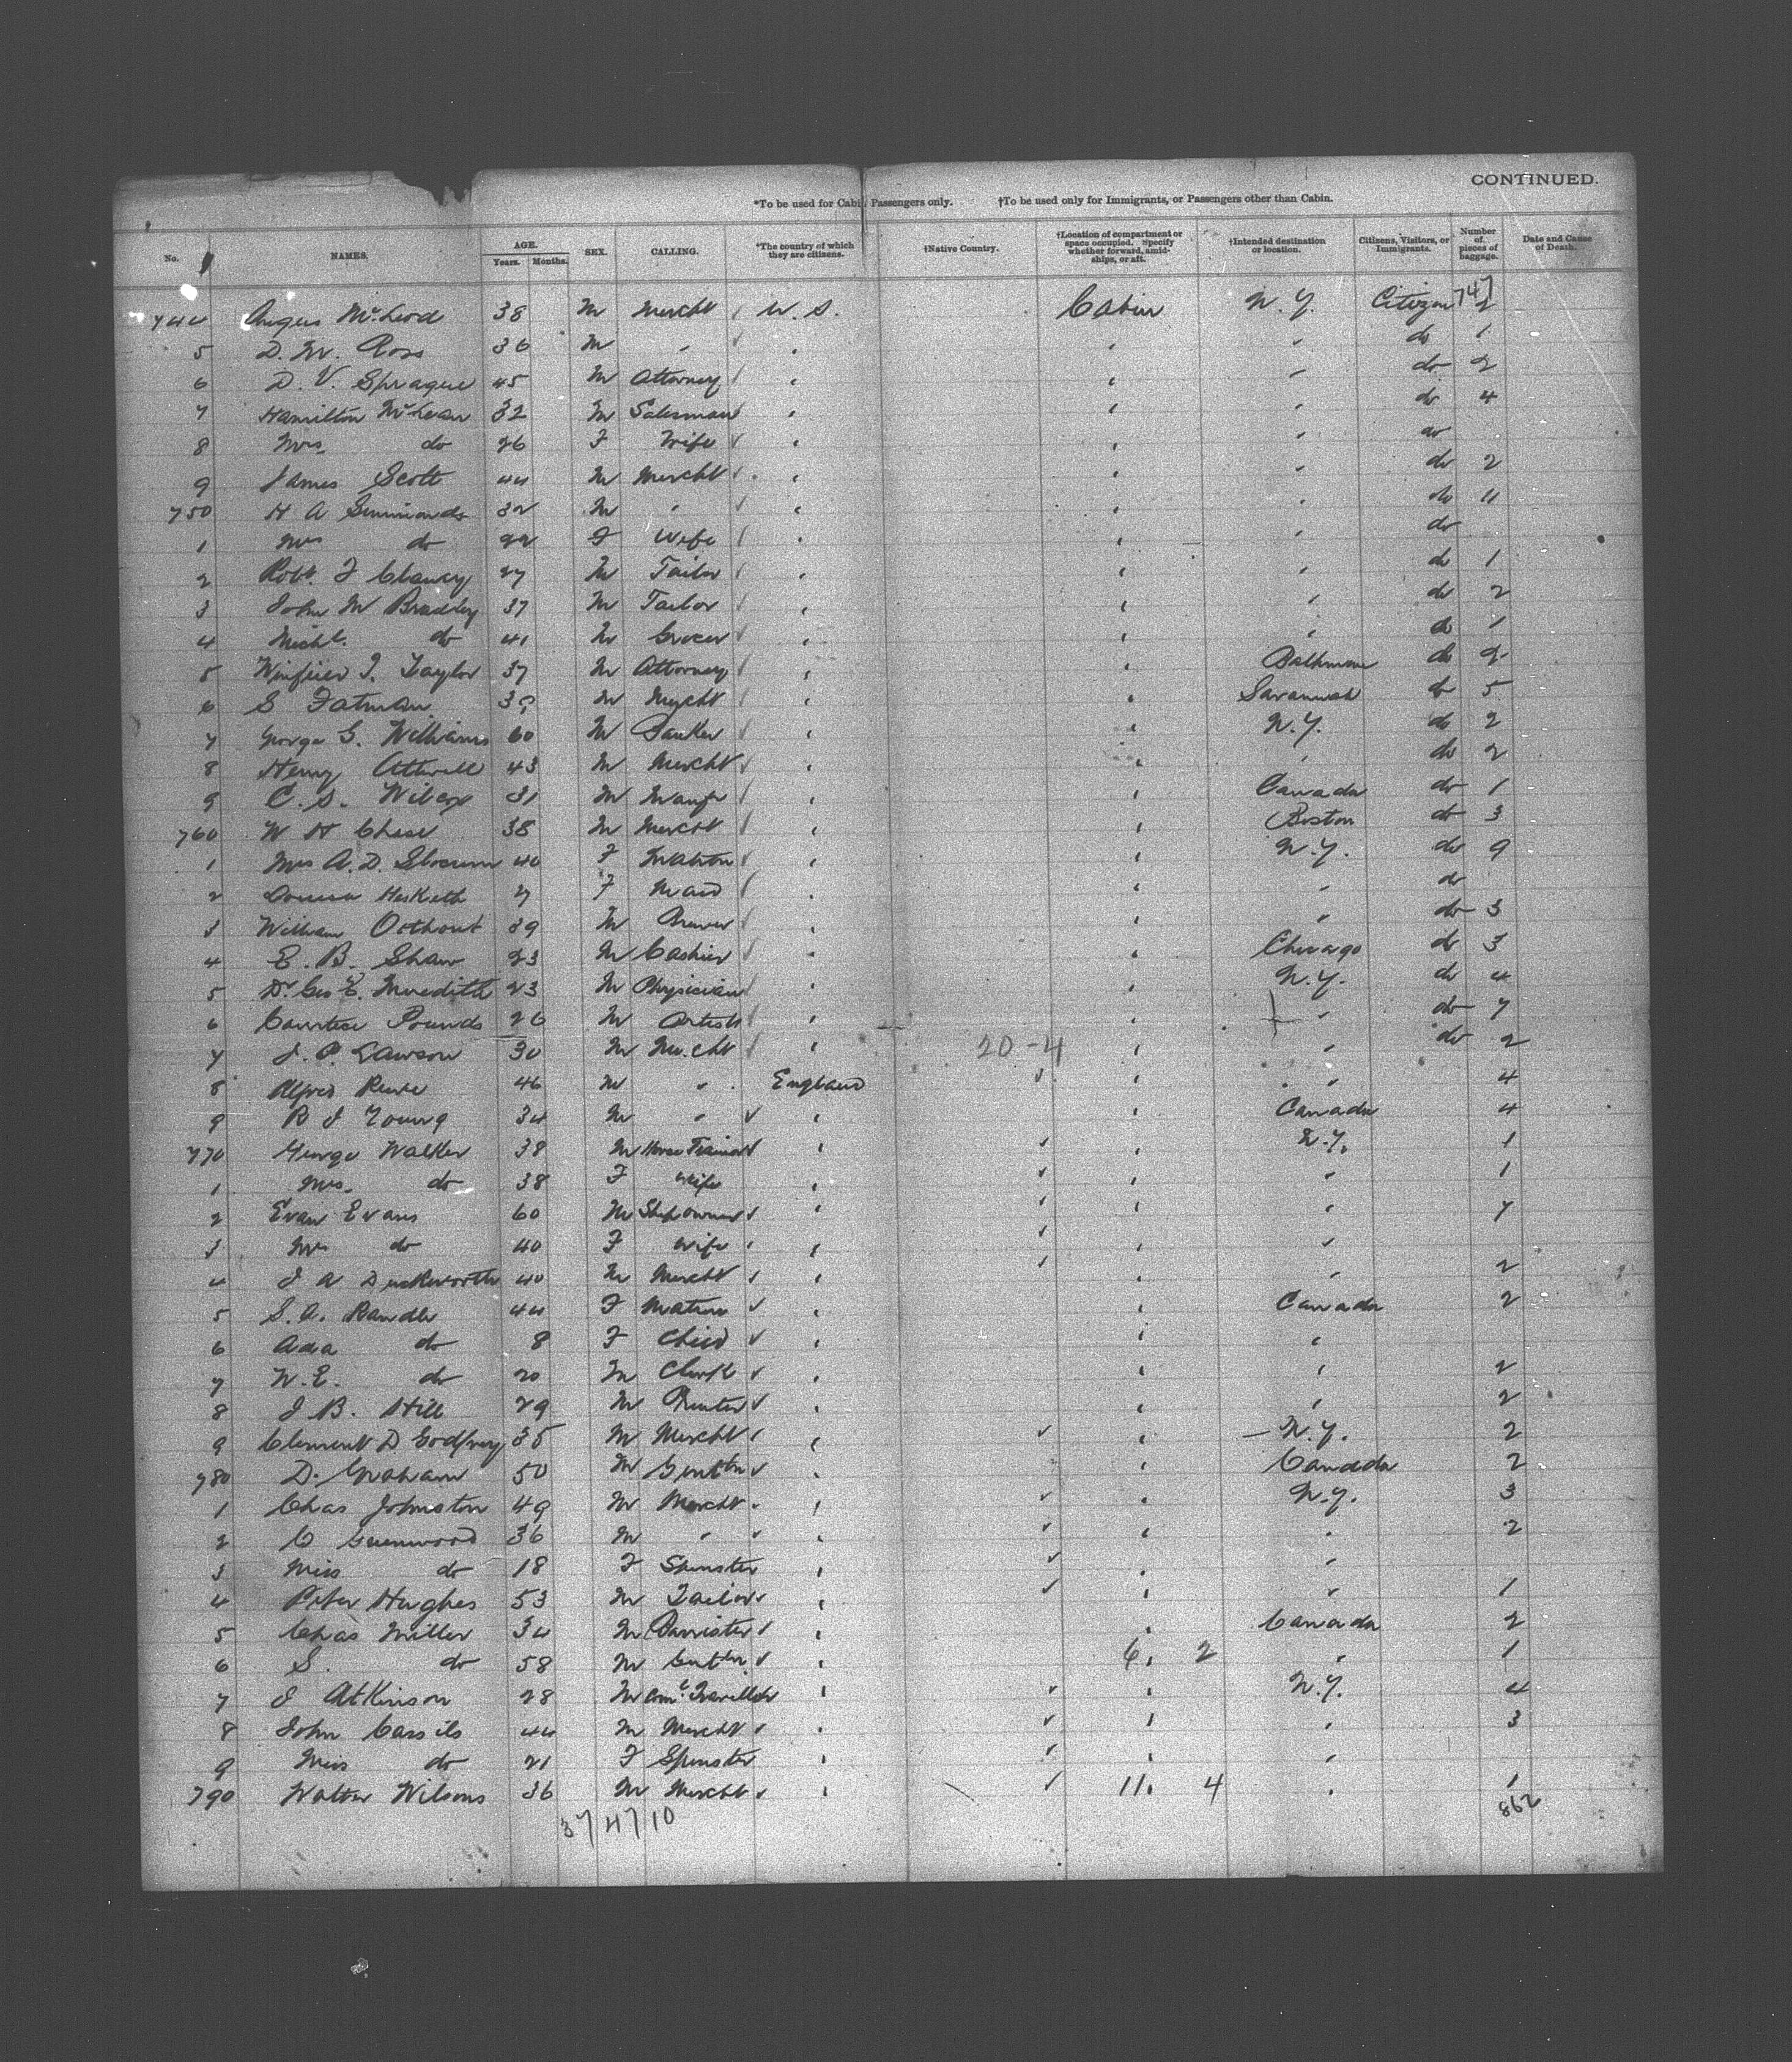 CONTINUED.
*To be used for Cabin Passengers only. †To be used only for Immigrants, or Passengers other than Cabin.
No. NAMES. AGE. Years. Months. SEX. CALLING. *The country of which they are citizens. †Native Country. †Location of compartment or space occupied. Specify whether forward, amidships, or aft. †Intended destination or location. Citizens, Visitors, or Immigrants. Number of pieces of baggage. Date and Cause of Death.
747
744 Angus McLeod 38 M Mercht U.S. Cabin N.Y. Citizen 2
5 D. M. Ross 36 M " " " " do 1
6 D. V. Sprague 45 M Attorney " " " do 2
7 Hamilton McLean 32 M Salesman " " " do 4
8 Mrs do 26 F Wife " " " do
9 James Scott 44 M Mercht " " " do 2
750 H A Simmonds 32 M " " " " do 11
1 Mrs do 22 F Wife " " " do
2 Robt. F Clancy 27 M Tailor " " " do 1
3 John M Bradley 37 M Tailor " " " do 2
4 Michl. do 41 M Grocer " " " do 1
5 J. Taylor 37 M Attorney " " Baltimore do 2
6 S Fatman M Mercht " " Savannah do 5
7 George G. Williams 60 M Banker " " N.Y. do 2
8 Henry Attwell 43 M Mercht " " " do 2
9 C. S. Wilcox 31 M Manfr " " Canada do 1
760 W H Chase 38 M Mercht " " Boston do 3
1 Mrs A. D. Slocum 40 F Matron " " N.Y. do 9
2 Louisa Hesketh F Maid " " " do
3 William Oothout 39 M Brewer " " " do 3
4 E. B. Shaw 23 M Cashier " " Chicago do 3
5 Dr. Geo E. Meredith 23 M Physician " " N.Y. do 4
6 Courtice Pounds 26 M Artist " " " do 7
7 J. P. Lawson 30 M Mercht " 20-4 " " do 2
8 Alfred 46 M " England " " 4
9 R J Young 34 M " " " Canada 4
770 George Walker 38 M Horse Trainer " " N.Y. 1
1 Mrs. do 38 F Wife " " " 1
2 Evan Evans 60 M Shipowner " " " 7
3 Mrs do 40 F Wife " " "
4 J A Duckworth 40 M Mercht " " " 2
5 S. A. Randle 44 F Matron " " Canada 2
6 Ada do 8 F Child " " "
7 W. E. do 20 M Clerk " " " 2
8 J B. Hill 29 M Printer " " " 2
9 Clement D Godfrey 35 M Mercht " " N.Y. 2
780 D. Graham 50 M Gentln " " Canada 2
1 Chas Johnston 49 M Mercht " " N.Y. 3
2 C Greenwood 36 M " " " " 2
3 Miss do 18 F Spinster " " "
4 Peter Hughes 53 M Tailor " " " 1
5 Chas Miller 34 M Barrister " " Canada 2
6 S. do 58 M Gentln " 6 " 2 " 1
7 J Atkinson 28 M Coml. Traveller " " N.Y. 4
8 John Cassils 44 M Mercht " " " 3
9 Miss do 21 F Spinster " " "
790 Walter Wilsons 36 M Mercht " 11 " 4 " 1
37 47 10 862